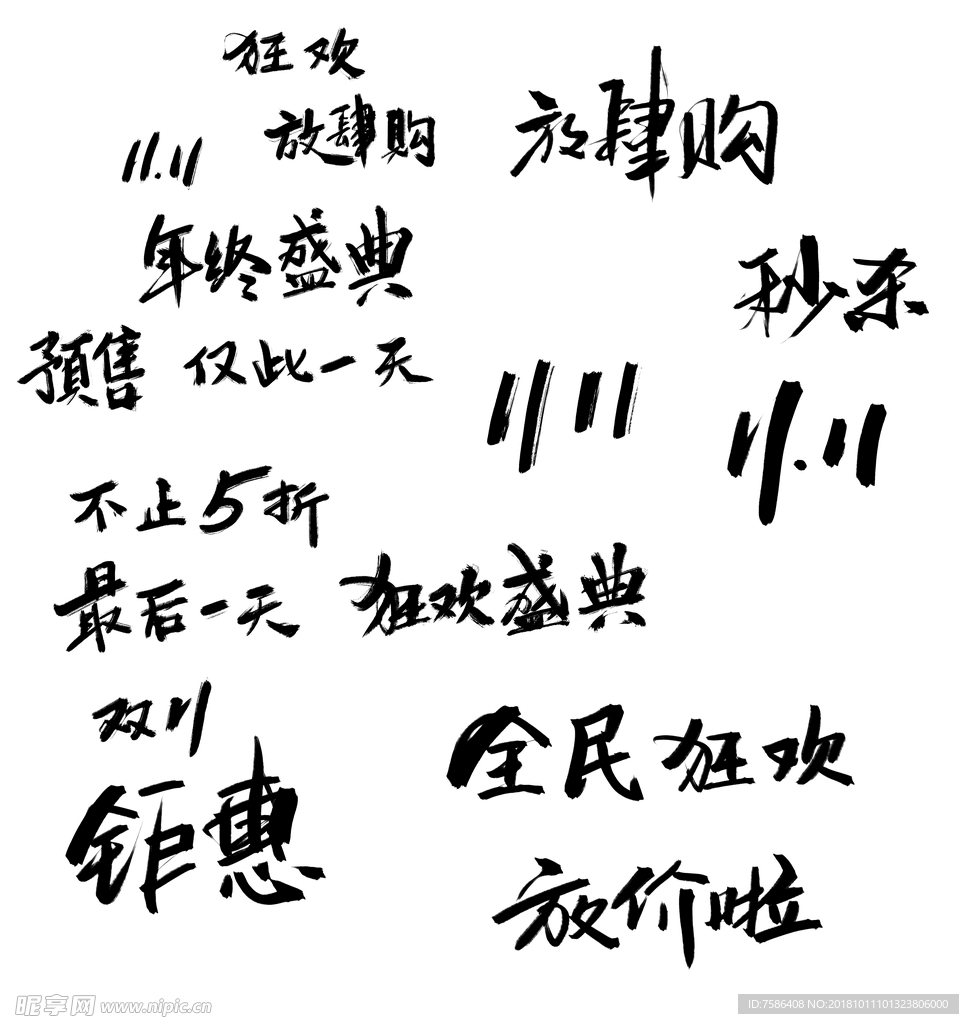 狂欢
放肆购
放肆购
11.11
年终盛典
秒杀
預售 仅此一天
11 11
11.11
不止5折
最后一天
狂欢盛典
双11
钜惠
全民狂欢
放价啦
昵享网 www.nipic.cn
ID:7586408 NO:20181011101323806000